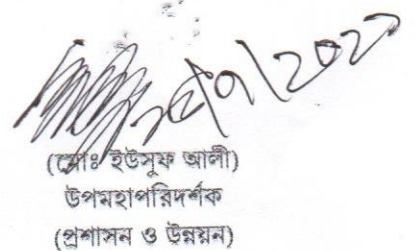 (মোঃ ইউসুফ আলী)
উপমহাপরিদর্শক
(প্রশাসন ও উন্নয়ন)